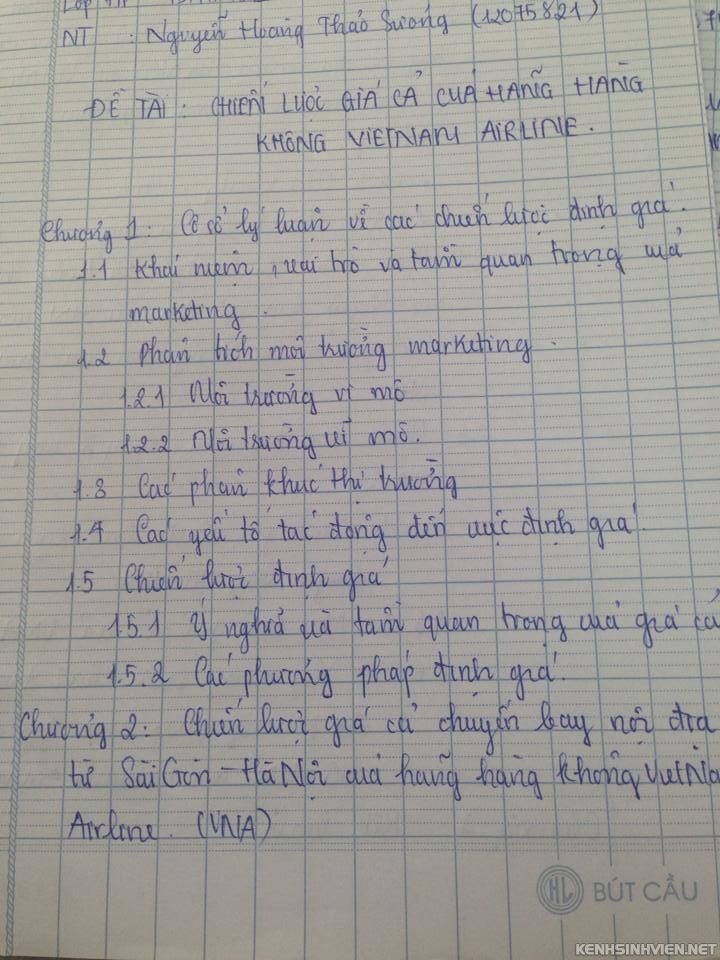 Lớp
NT : Nguyễn Hoàng Thảo Sương (12075821)
ĐỀ TÀI : CHIẾN LƯỢC GIÁ CẢ CỦA HÃNG HÀNG
KHÔNG VIETNAM AIRLINE.
Chương 1: Cơ sở lý luận về các chiến lược định giá.
1.1 Khái niệm, vai trò và tầm quan trọng của
marketing.
1.2 Phân tích môi trường marketing.
1.2.1 Môi trường vĩ mô
1.2.2 Môi trường vi mô.
1.3 Các phân khúc thị trường
1.4 Các yếu tố tác động đến việc định giá.
1.5 Chiến lược định giá
1.5.1 Ý nghĩa và tầm quan trọng của giá cả
1.5.2 Các phương pháp định giá.
Chương 2: Chiến lược giá cả chuyến bay nội địa
từ Sài Gòn - Hà Nội của hãng hàng không VietNa
Airline. (VNA)
HL BÚT CẦU
KENHSINHVIEN.NET